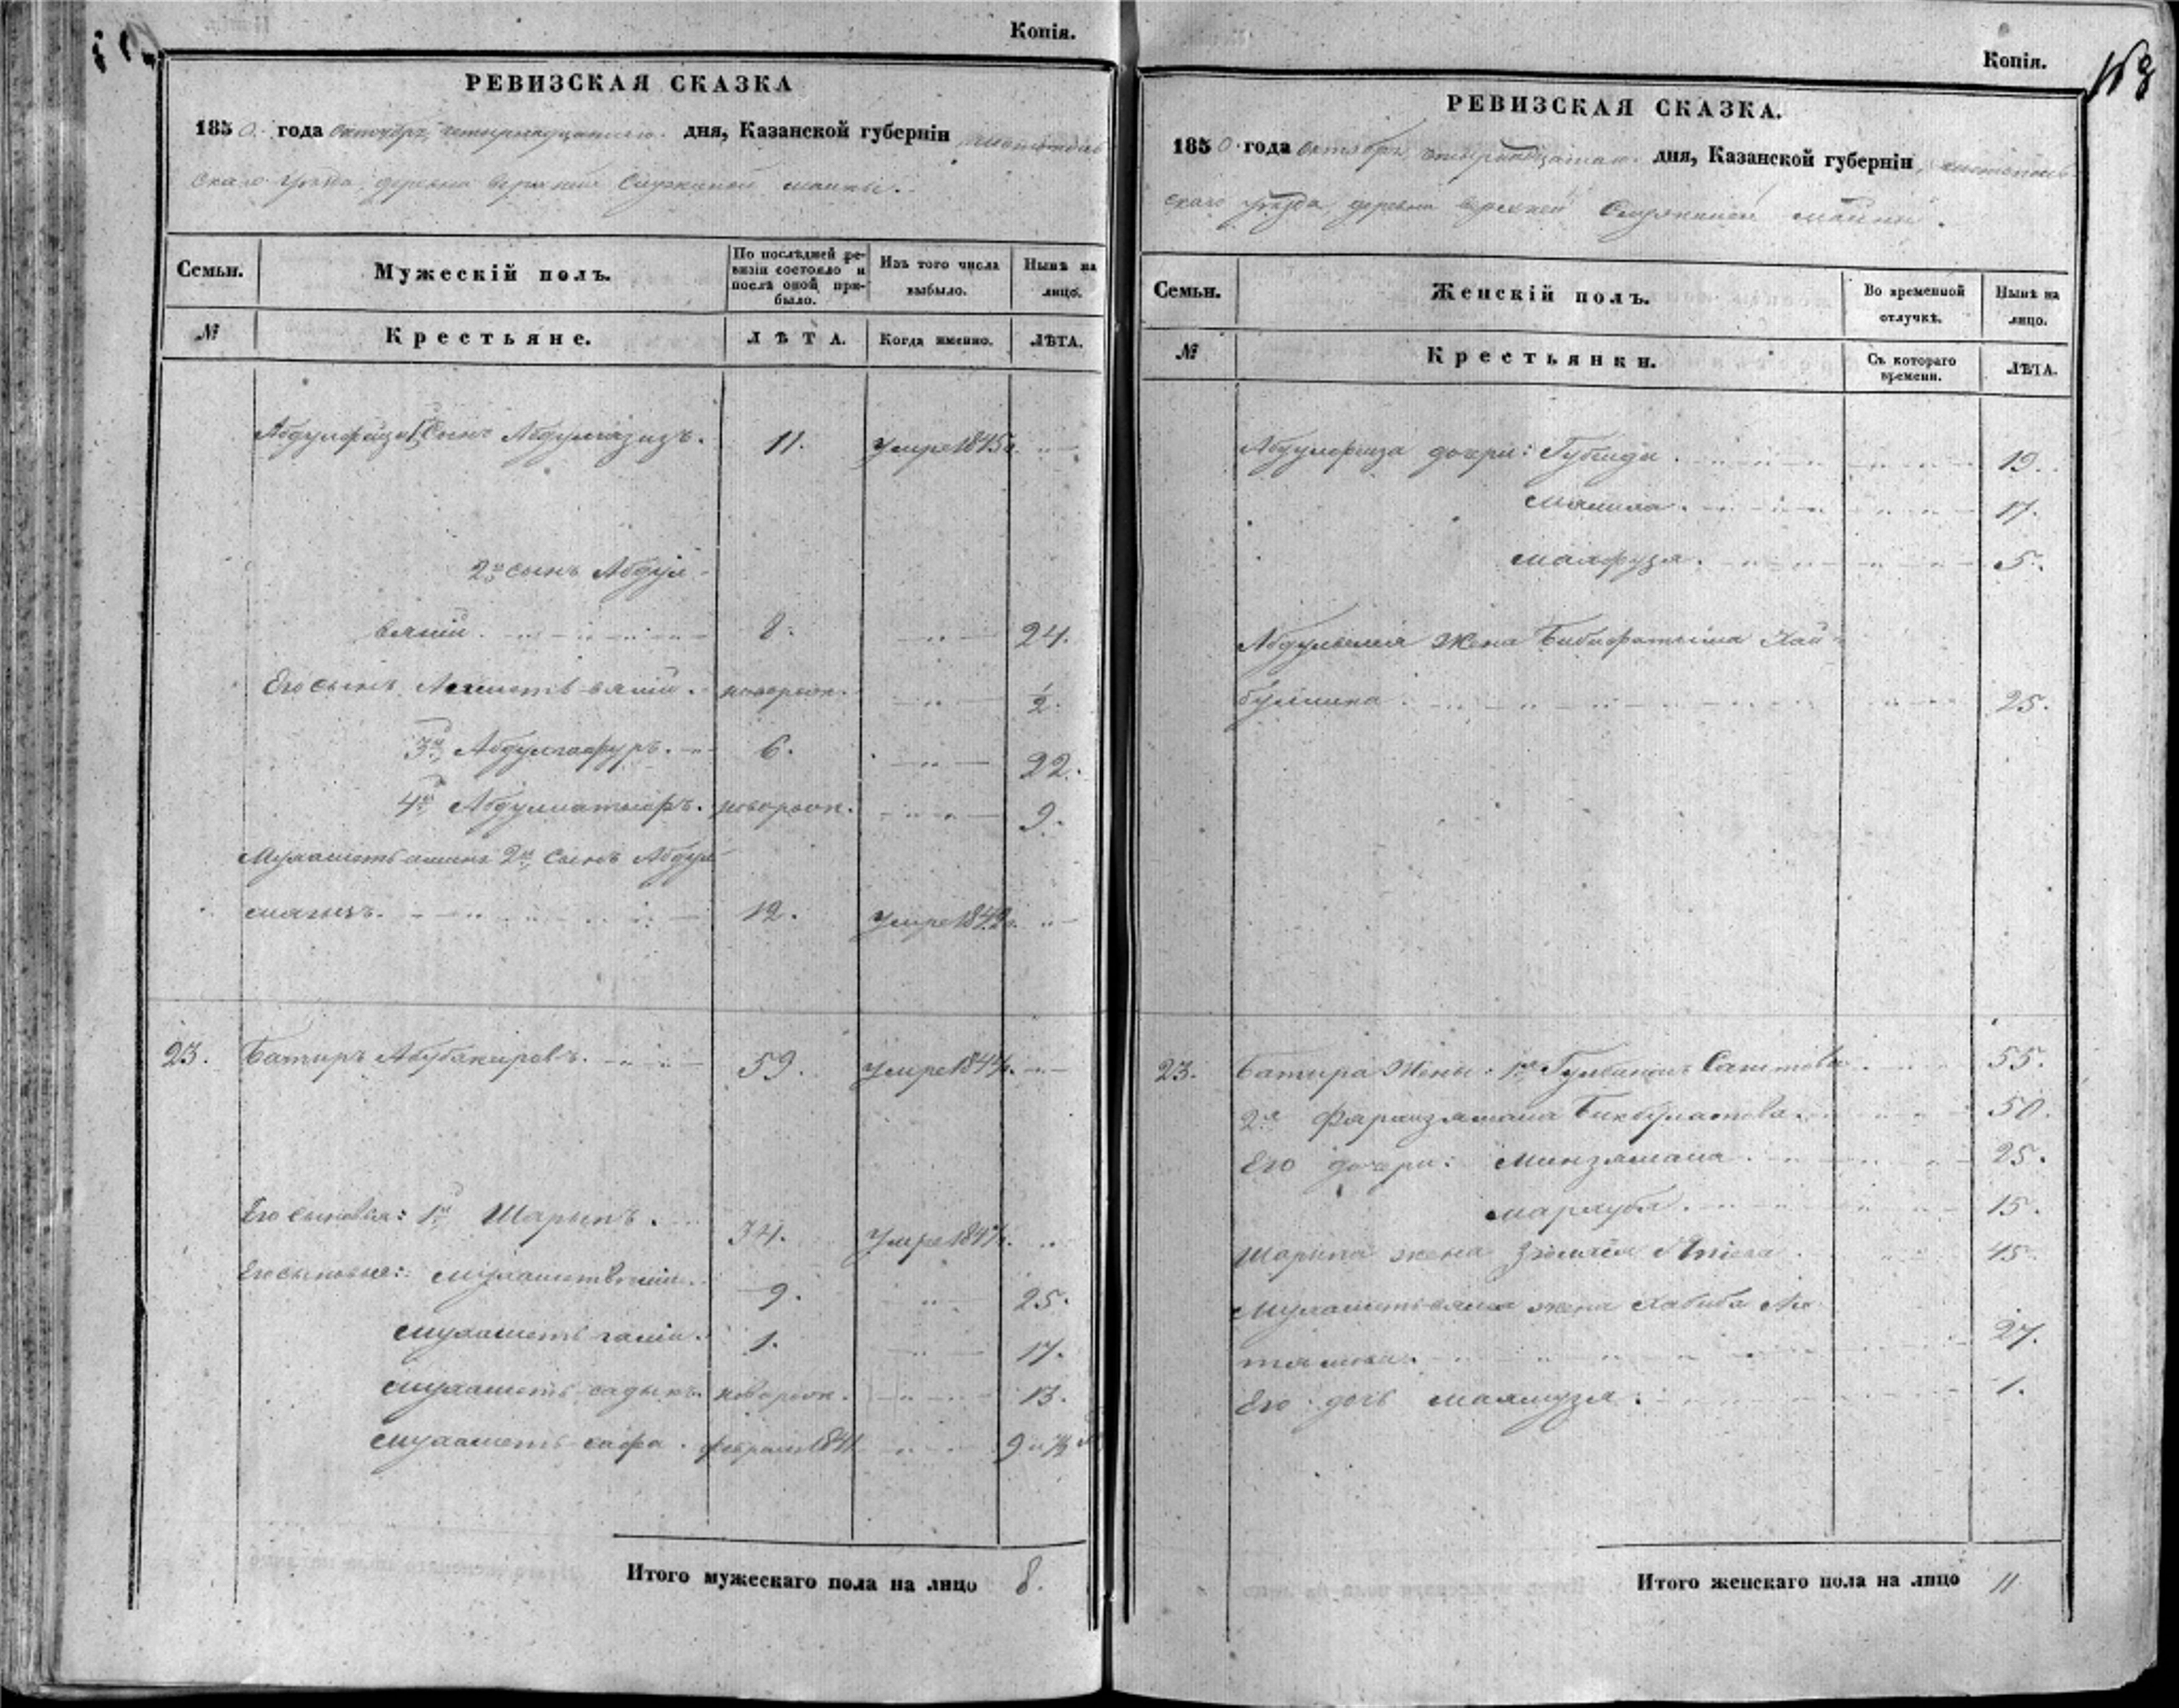 Копія.
РЕВИЗСКАЯ СКАЗКА
1850. года октября четырнадцатаго дня, Казанской губерніи чистополь
скаго уѣзда, деревни верхней Служилой маины.
Семьи.
Мужескій полъ.
По послѣдней ре-
визіи состояло и
послѣ оной при-
было.
Изъ того числа
выбыло.
Нынѣ на
лицо.
№
Крестьяне.
ЛѢТА.
Когда именно.
ЛѢТА.
Абдулфаиза 1й Сынъ Абдулгазизъ. 11. Умре 1845г.
2й сынъ Абдул-
вялій. 8. 24.
Его сынъ Ахметъ-вялій. новорож. 1/2.
3й Абдулгафуръ. 6. 22.
4й новорож. 9.
2й, Сынъ Абдул
12. Умре 1842г.
23. Батыръ Абубакировъ. 59. Умре 1844г.
Его сыновья: 1й Шарыпъ. 34. Умре 184
Его сыновья: Мухаметвялій. 9. 25.
Мухаметъ галій. 1. 17.
Мухаметъ-садыкъ. новорож. 13.
Мухаметъ-сафа. февраля 1841 9 и
Итого мужескаго пола на лицо 8.
Копія.
РЕВИЗСКАЯ СКАЗКА.
1850. года октября четырнадцатаго дня, Казанской губерніи, чистополь
скаго уѣзда, деревни верхней Служилой маины.
Семьи.
Женскій полъ.
Во временной
отлучкѣ.
Нынѣ на
лицо.
№
Крестьянки.
Съ котораго
времени.
ЛѢТА.
Абдулфаиза дочери: Губайда. 19.
17.
Махфузя. 5.
Абдулвялія Жена Бибифатыма Хай-
буллина. 25.
23. Батыра Жены: 1я, Саитова 55.
2я Бикбулатова. 50.
Его дочери: Минзямала. 25.
Мархуба. 15.
Шарыпа жена 45.
Мухаметвялія жена Хабиба
27.
Его дочь 1.
Итого женскаго пола на лицо 11